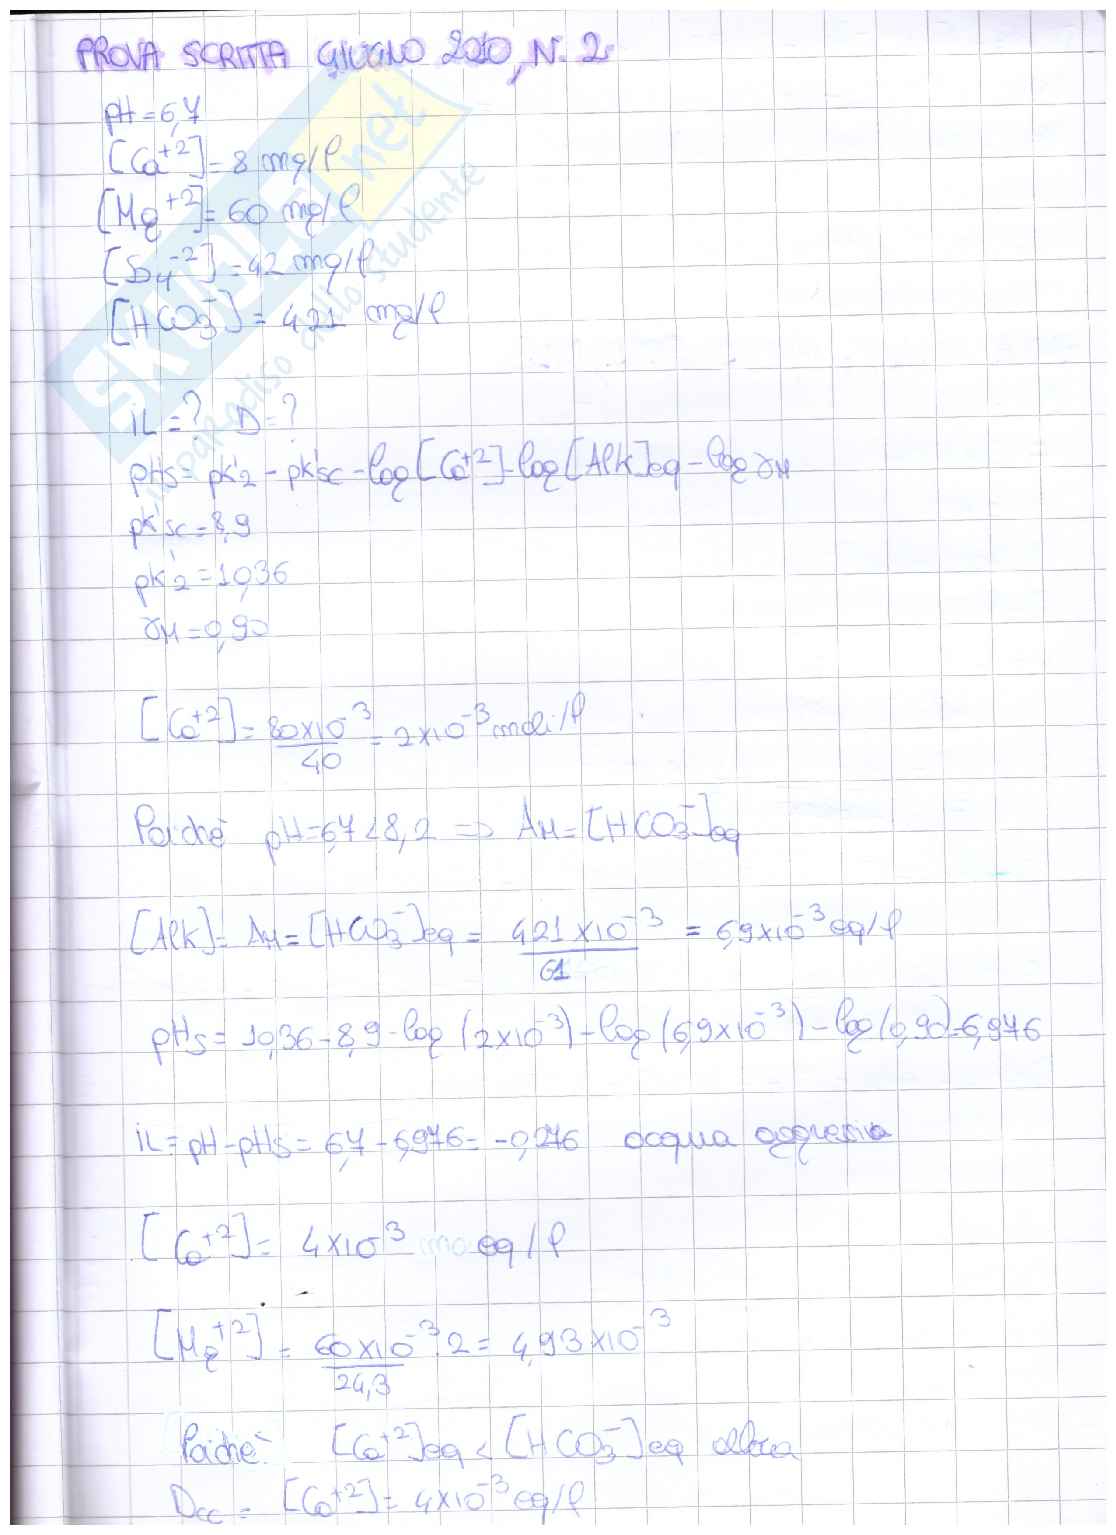 PROVA SCRITTA GIUGNO 2010, N. 2
pH = 6,7
[Ca+2] = 8 mg/l
[Mg+2] = 60 mg/l
[SO4-2] = 42 mg/l
[HCO3-] = 421 mg/l
iL = ? D = ?
pHs = pk'2 - pk'sc - log[Ca+2] - log[Alk]eq - log γM
pk'sc = 8,9
pk'2 = 10,36
γM = 0,90
[Ca+2] = 80x10-3/40 = 2x10-3 moli/l
Poiché pH = 6,7 < 8,2 => AM = [HCO3-]eq
[Alk] = AM = [HCO3-]eq = 421x10-3/61 = 6,9x10-3 eq/l
pHs = 10,36 - 8,9 - log(2x10-3) - log(6,9x10-3) - log(0,90) = 6,976
iL = pH - pHs = 6,7 - 6,976 = -0,276 acqua aggressiva
[Ca+2] = 4x10-3 eq/l
[Mg+2] = 60x10-3/24,3 · 2 = 4,93x10-3
Poiché [Ca+2]eq < [HCO3-]eq allora
Dcc = [Ca+2] = 4x10-3 eq/l
SKUOLA.net
il paradiso dello studente